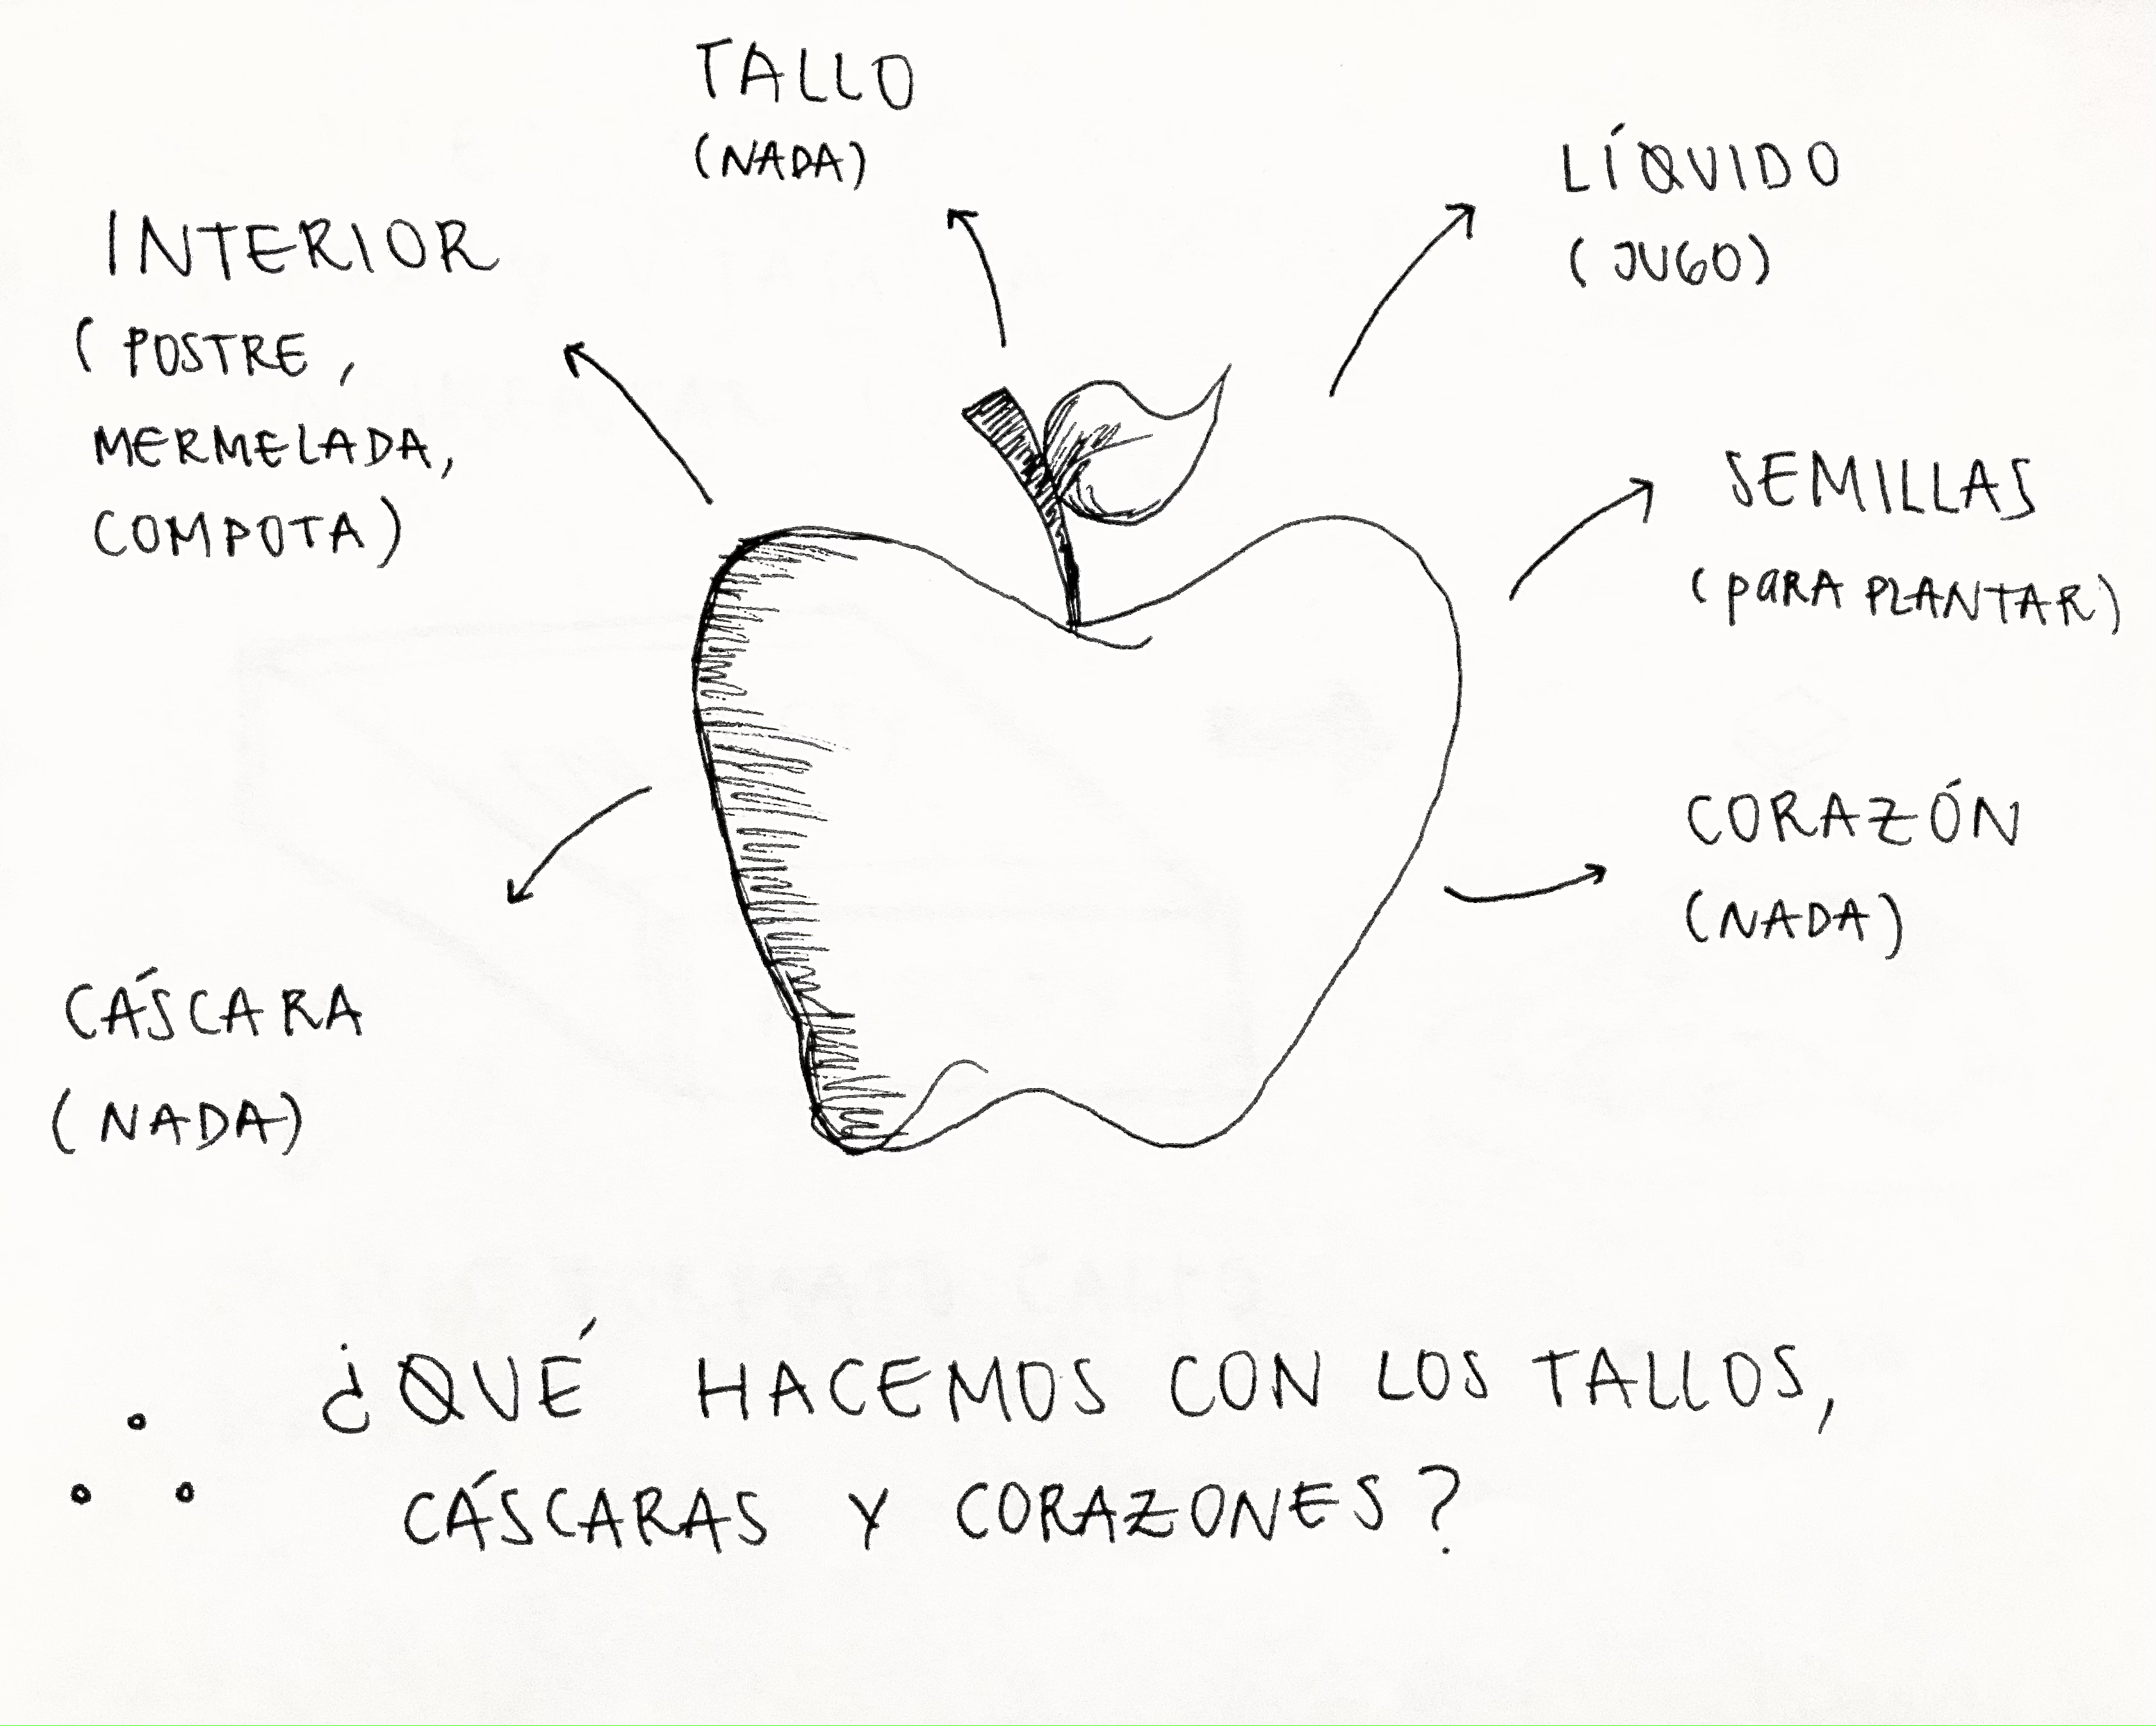 TALLO
(NADA)
LÍQUIDO
(JUGO)
INTERIOR
(POSTRE,
MERMELADA,
COMPOTA)
SEMILLAS
(PARA PLANTAR)
CORAZÓN
(NADA)
CÁSCARA
(NADA)
¿QUÉ HACEMOS CON LOS TALLOS,
CÁSCARAS Y CORAZONES?